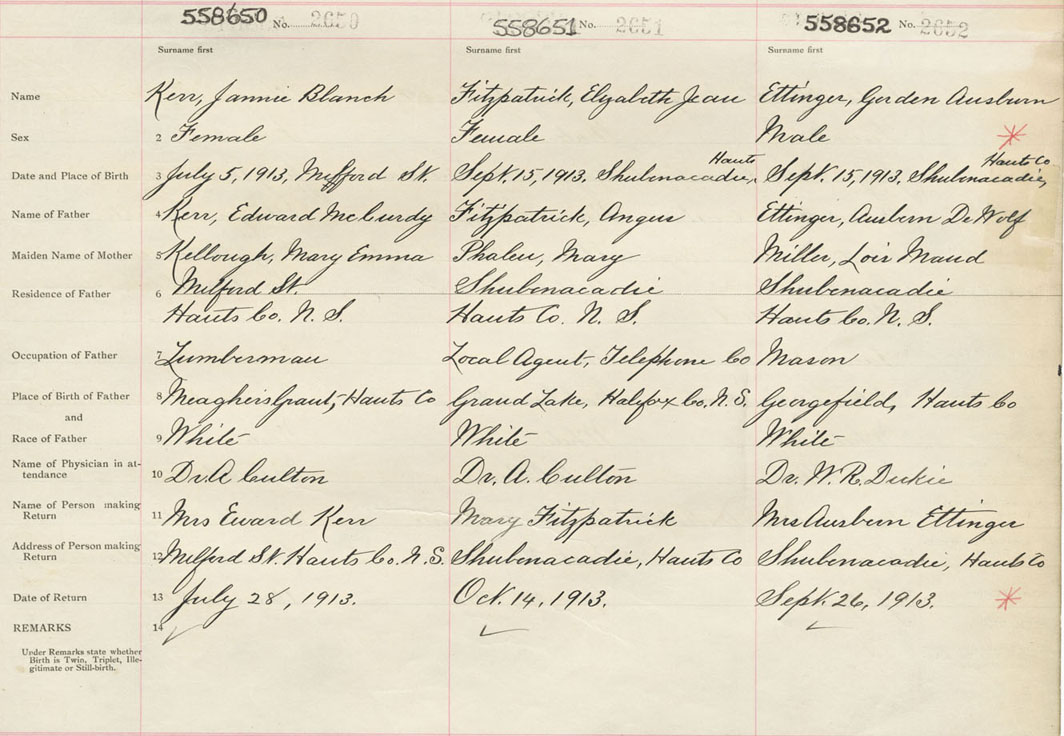 558650 No. 2650 558651 No. 2651 558652 No. 2652
Surname first Surname first Surname first
Name Kerr, Jannie Blanch Fitzpatrick, Elyzabith Jean Ettinger, Gorden Ausburn
Sex 2 Female Female Male
Hants Hants Co
Date and Place of Birth 3 July 5, 1913, Milford St. Sept. 15, 1913. Shubenacadie, Sept. 15, 1913. Shubenacadie,
Name of Father 4 Kerr, Edward McCurdy Fitzpatrick, Angus Ettinger, Ausbern DeWolf
Maiden Name of Mother 5 Kellough, Mary Emma Phalen, Mary Miller, Lois Maud
Residence of Father 6 Milford St. Shubenacadie Shubenacadie
Hants Co. N. S. Hants Co. N. S. Hants Co. N. S.
Occupation of Father 7 Lumberman Local Agent, Telephone Co Mason
Place of Birth of Father 8 Meaghers Grant, Hants Co Grand Lake, Halyfax Co. N. S. Georgefield, Hants Co
and
Race of Father 9 White White White
Name of Physician in at-
tendance 10 Dr. A Culton Dr. A. Culton Dr. W. R. Dickie
Name of Person making
Return 11 Mrs Eward Kerr Mary Fitzpatrick Mrs Ausbern Ettinger
Address of Person making
Return 12 Milford St. Hants Co. N. S. Shubenacadie, Hants Co Shubenacadie, Hants Co
Date of Return 13 July 28, 1913. Oct. 14, 1913. Sept. 26, 1913.
REMARKS 14
Under Remarks state whether
Birth is Twin, Triplet, Ille-
gitimate or Still-birth.